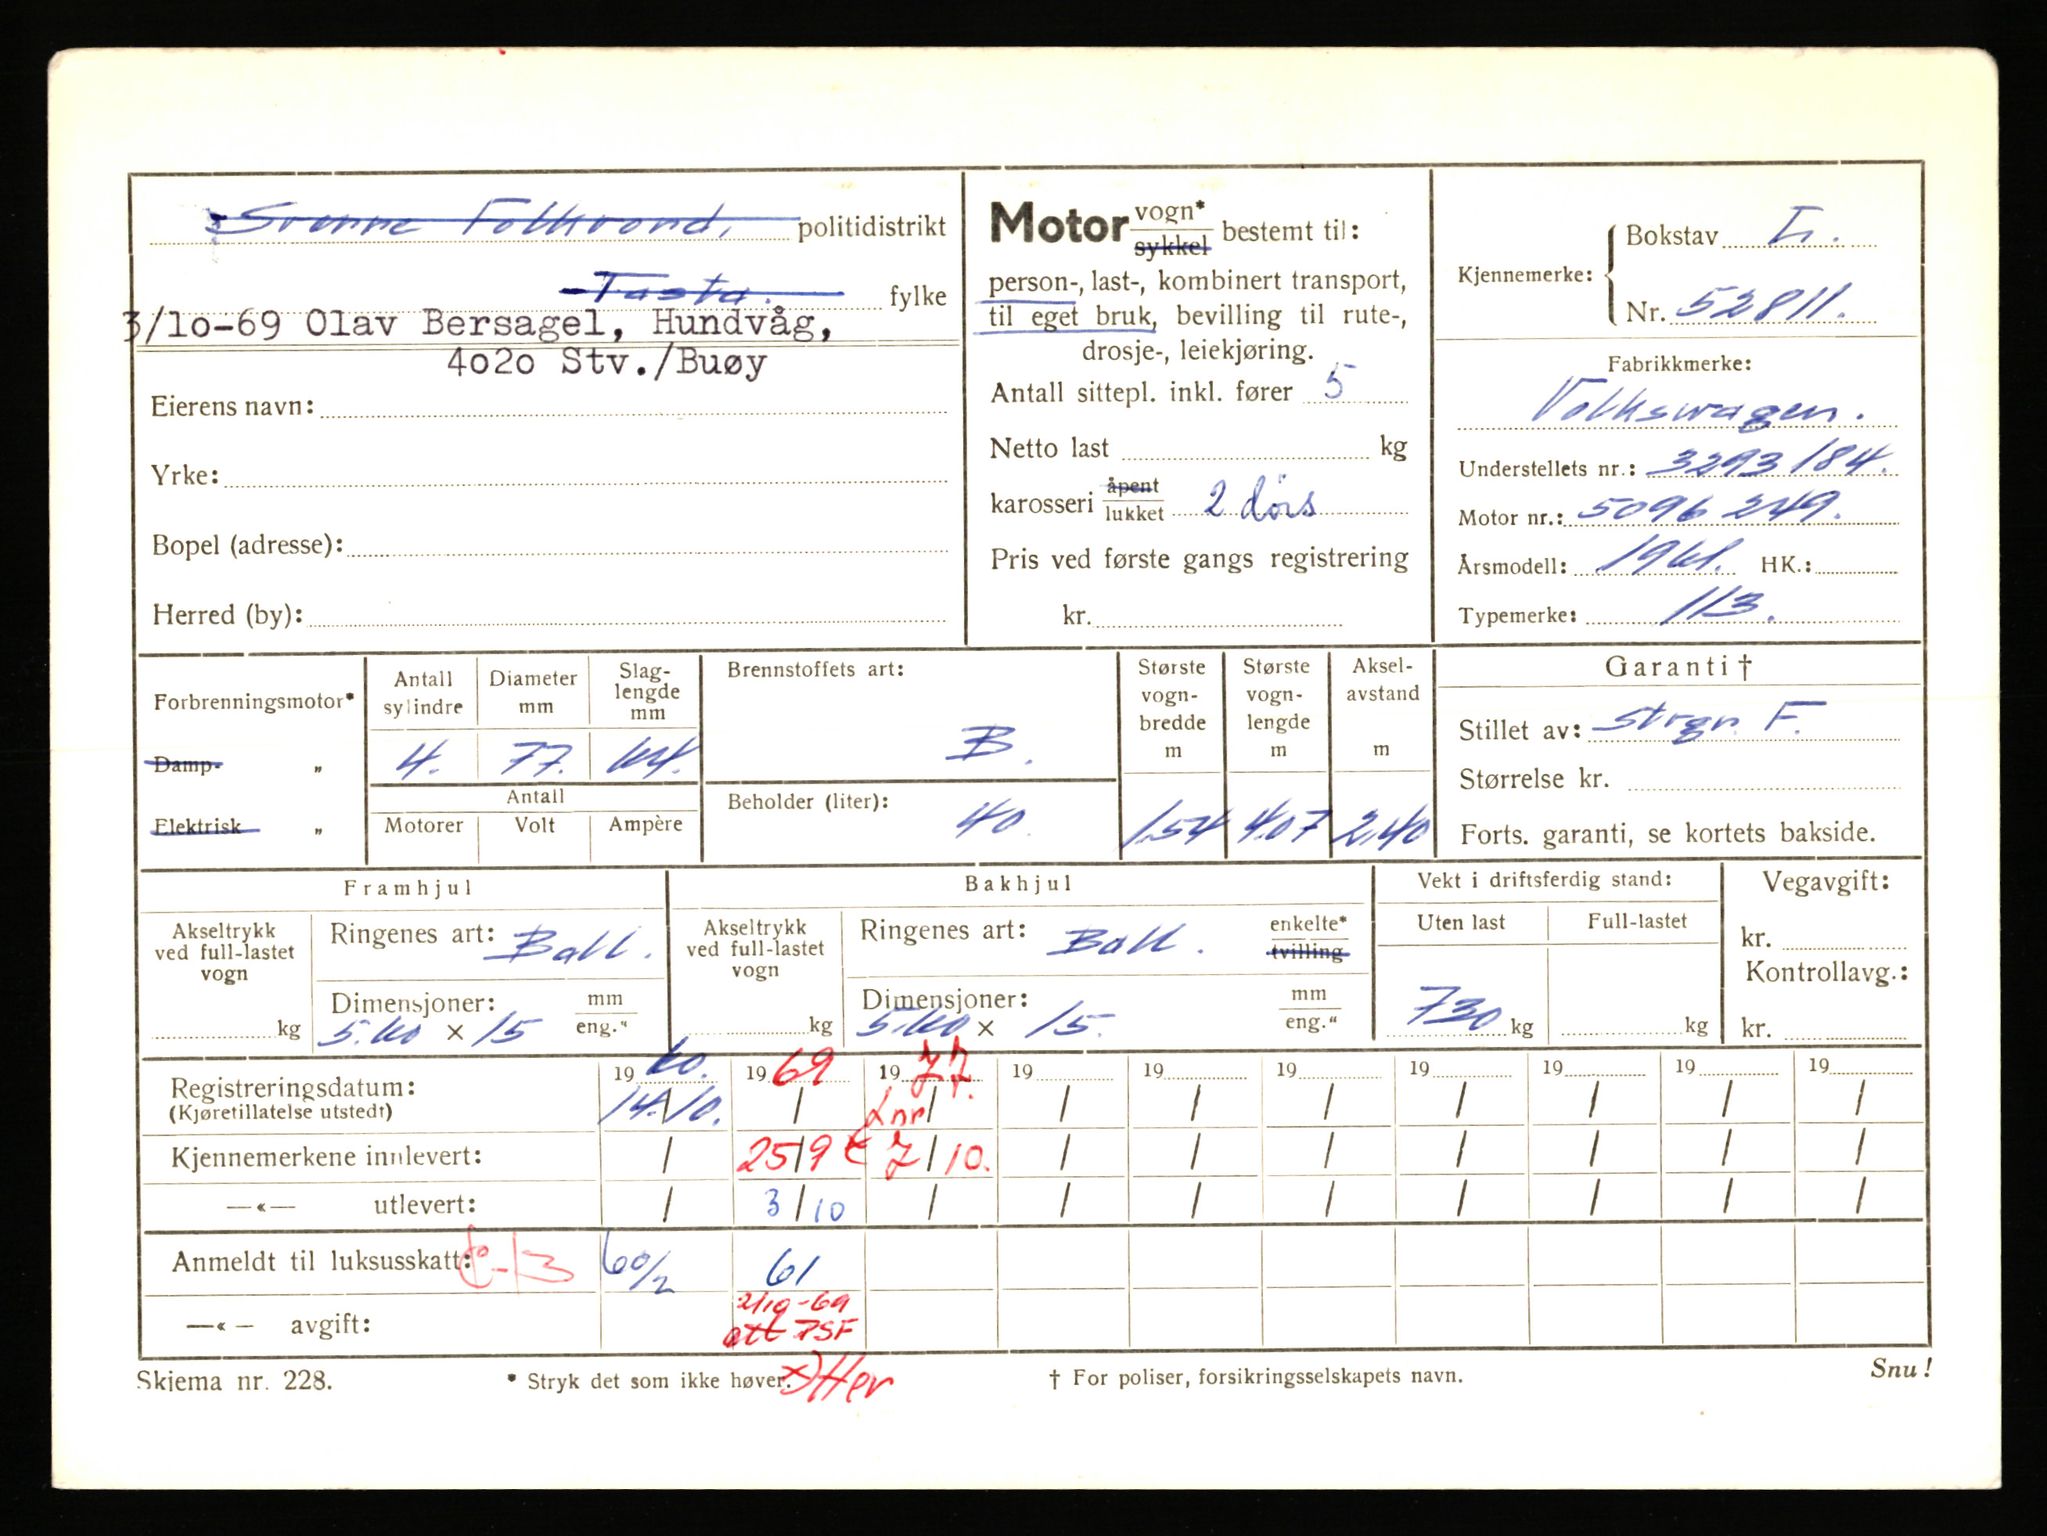 Svenne Folkvord, politidistrikt
Tasta. fylke
3/10-69 Olav Bersagel, Hundvåg,
4020 Stv./Buøy
Eierens navn:
Yrke:
Bopel (adresse):
Herred (by):
Motor vogn* sykkel bestemt til:
person-, last-, kombinert transport,
til eget bruk, bevilling til rute-,
drosje-, leiekjøring.
Antall sittepl. inkl. fører 5
Netto last kg
karosseri åpent lukket 2 dørs
Pris ved første gangs registrering
kr.
Kjennemerke: Bokstav L.
Nr. 52811.
Fabrikkmerke:
Volkswagen.
Understellets nr.: 3293184.
Motor nr.: 5096249.
Årsmodell: 1961. HK.:
Typemerke: 113.
Forbrenningsmotor*
Damp- „
Elektrisk „
Antall sylindre
4.
Diameter mm
77.
Slag- lengde mm
64.
Antall
Motorer Volt Ampère
Brennstoffets art:
B.
Beholder (liter):
40
Største vogn- bredde m
1.54
Største vogn- lengde m
4.07
Aksel- avstand m
2.40
Garanti †
Stillet av: Strgr. F.
Størrelse kr.
Forts. garanti, se kortets bakside.
Framhjul
Akseltrykk ved full-lastet vogn
kg
Ringenes art: Ball.
Dimensjoner: mm eng."
5.60 × 15
Bakhjul
Akseltrykk ved full-lastet vogn
kg
Ringenes art: Ball. enkelte* tvilling
Dimensjoner: mm eng."
5.60 × 15.
Vekt i driftsferdig stand:
Uten last Full-lastet
730 kg kg
Vegavgift:
kr.
Kontrollavg.:
kr.
Registreringsdatum: 19 60. 19 69 19 77. 19 19 19 19 19 19 19
(Kjøretillatelse utstedt) 14./10. / Lnr / / / / / / / /
Kjennemerkene innlevert: / 25/9 7/10. / / / / / / /
—«— utlevert: / 3/10 / / / / / / / /
Anmeldt til luksusskatt: 60/2 61
—«— avgift: 2/10-69
att PSF
Skjema nr. 228.
* Stryk det som ikke høver.
x) Her
† For poliser, forsikringsselskapets navn.
Snu!